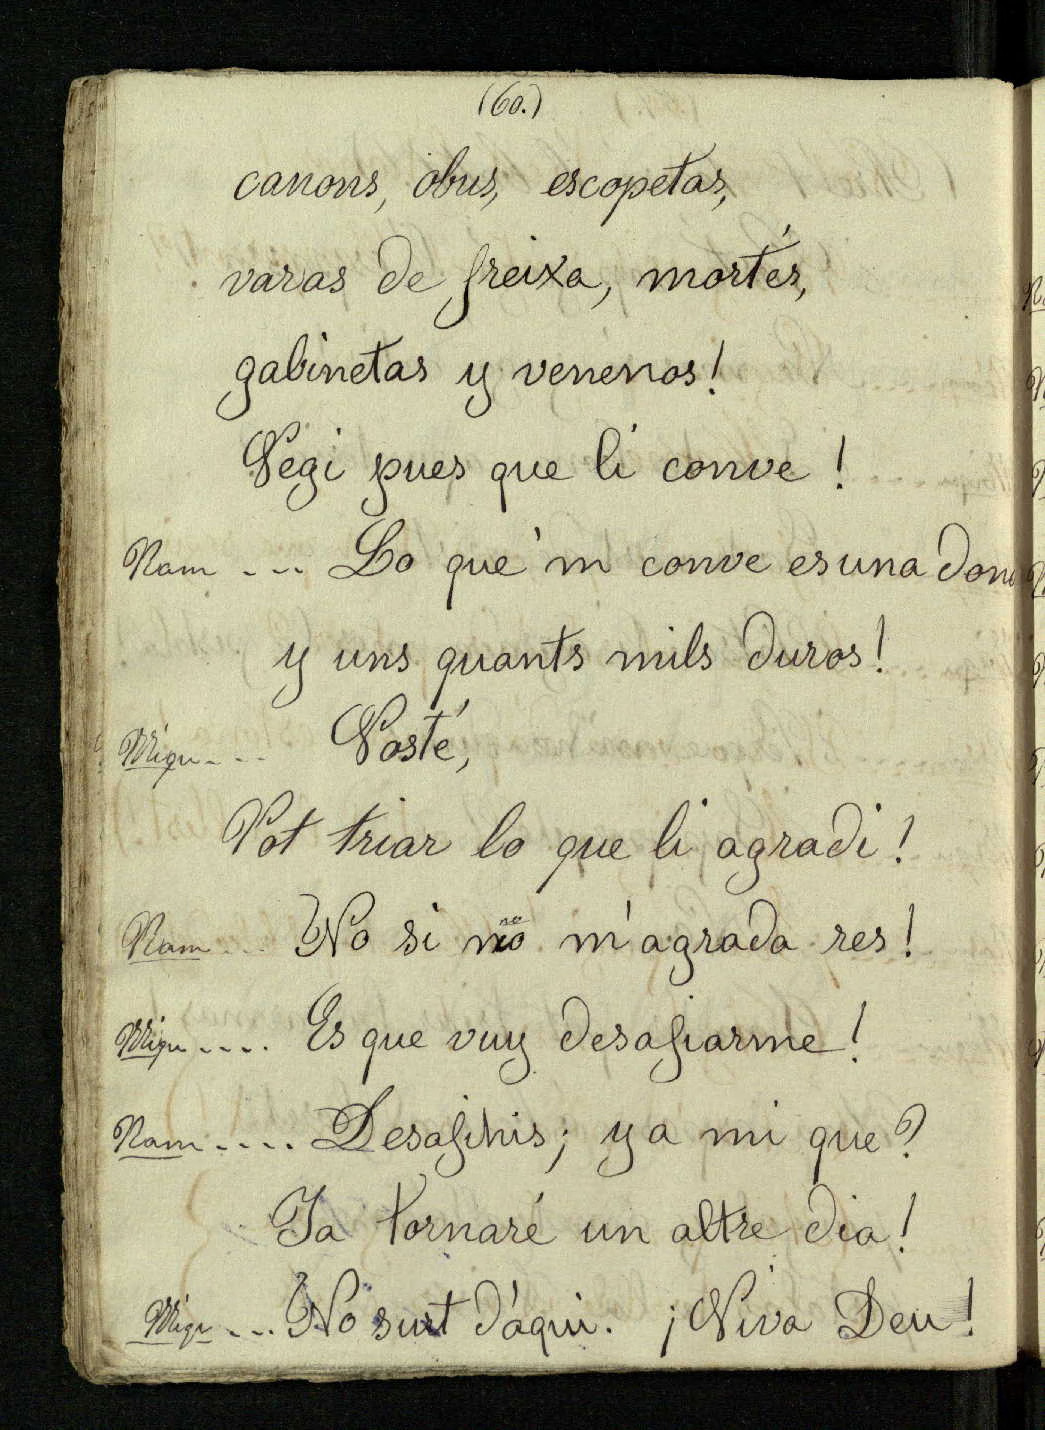 (60.)
canons, obus, escopetas,
varas de freixa, mortés,
gabinetas y venenos!
Vegi pues que li conve!
Nam --- Lo que'm conve es una don
y uns quants mils duros!
Miqu--- Vosté,
Pot triar lo que li agradi!
Nam --- No si no m'agrada res!
Miqu.... Es que vuy desafiarme!
Nam.... Desafihis; y a mi que?
Ja tornaré un altre dia!
Miqu --- No surt d'aqui. ¡Viva Deu!